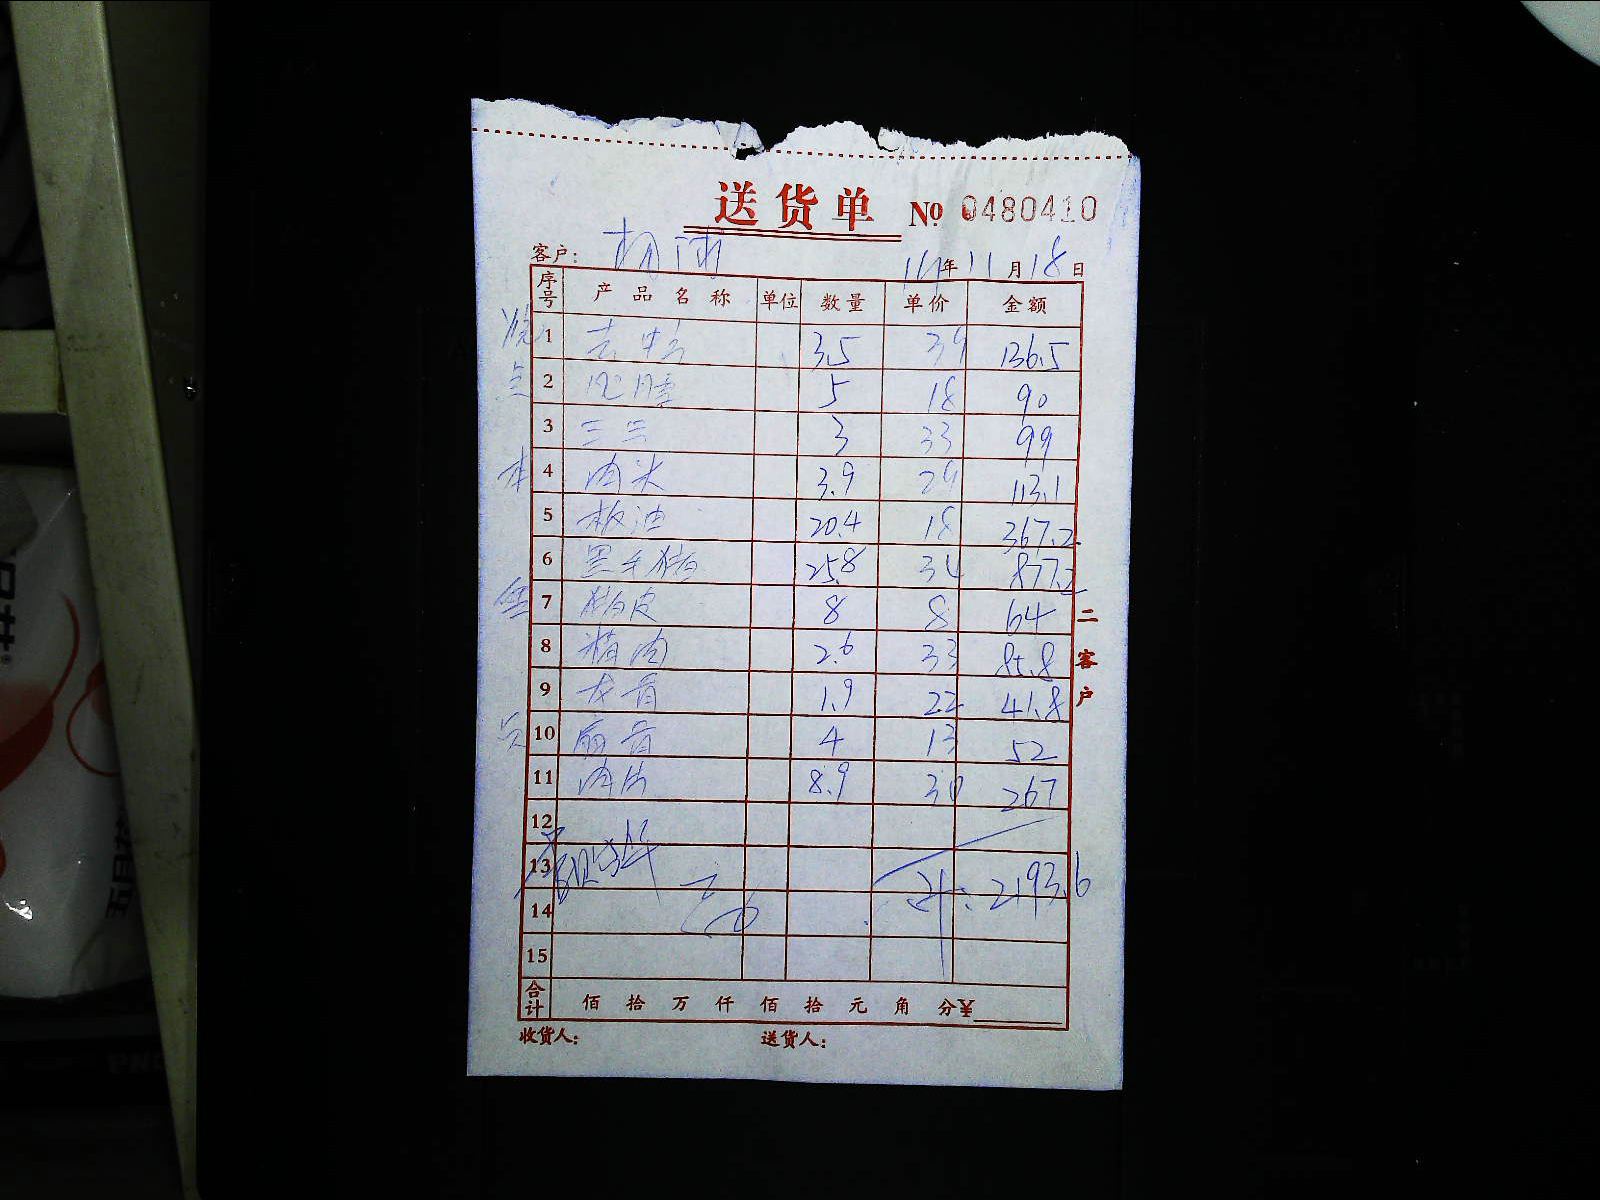 送货单 № 0480410
客户： 年11月18日
序号 产品名称 单位 数量 单价 金额
1 3.5 39 136.5
2 5 18 90
3 三三 3 33 99
4 肉头 3.9 29 113.1
5 板油 20.4 18 367.2
6 黑毛猪 25.8 34 877.2
7 猪皮 8 8 64
8 精肉 2.6 33 85.8
9 龙骨 1.9 22 41.8
10 扇骨 4 13 52
11 肉片 8.9 30 267
12
13 计: 2193.6
14
15
合计 佰 拾 万 仟 佰 拾 元 角 分 ¥
收货人： 送货人：
二客户